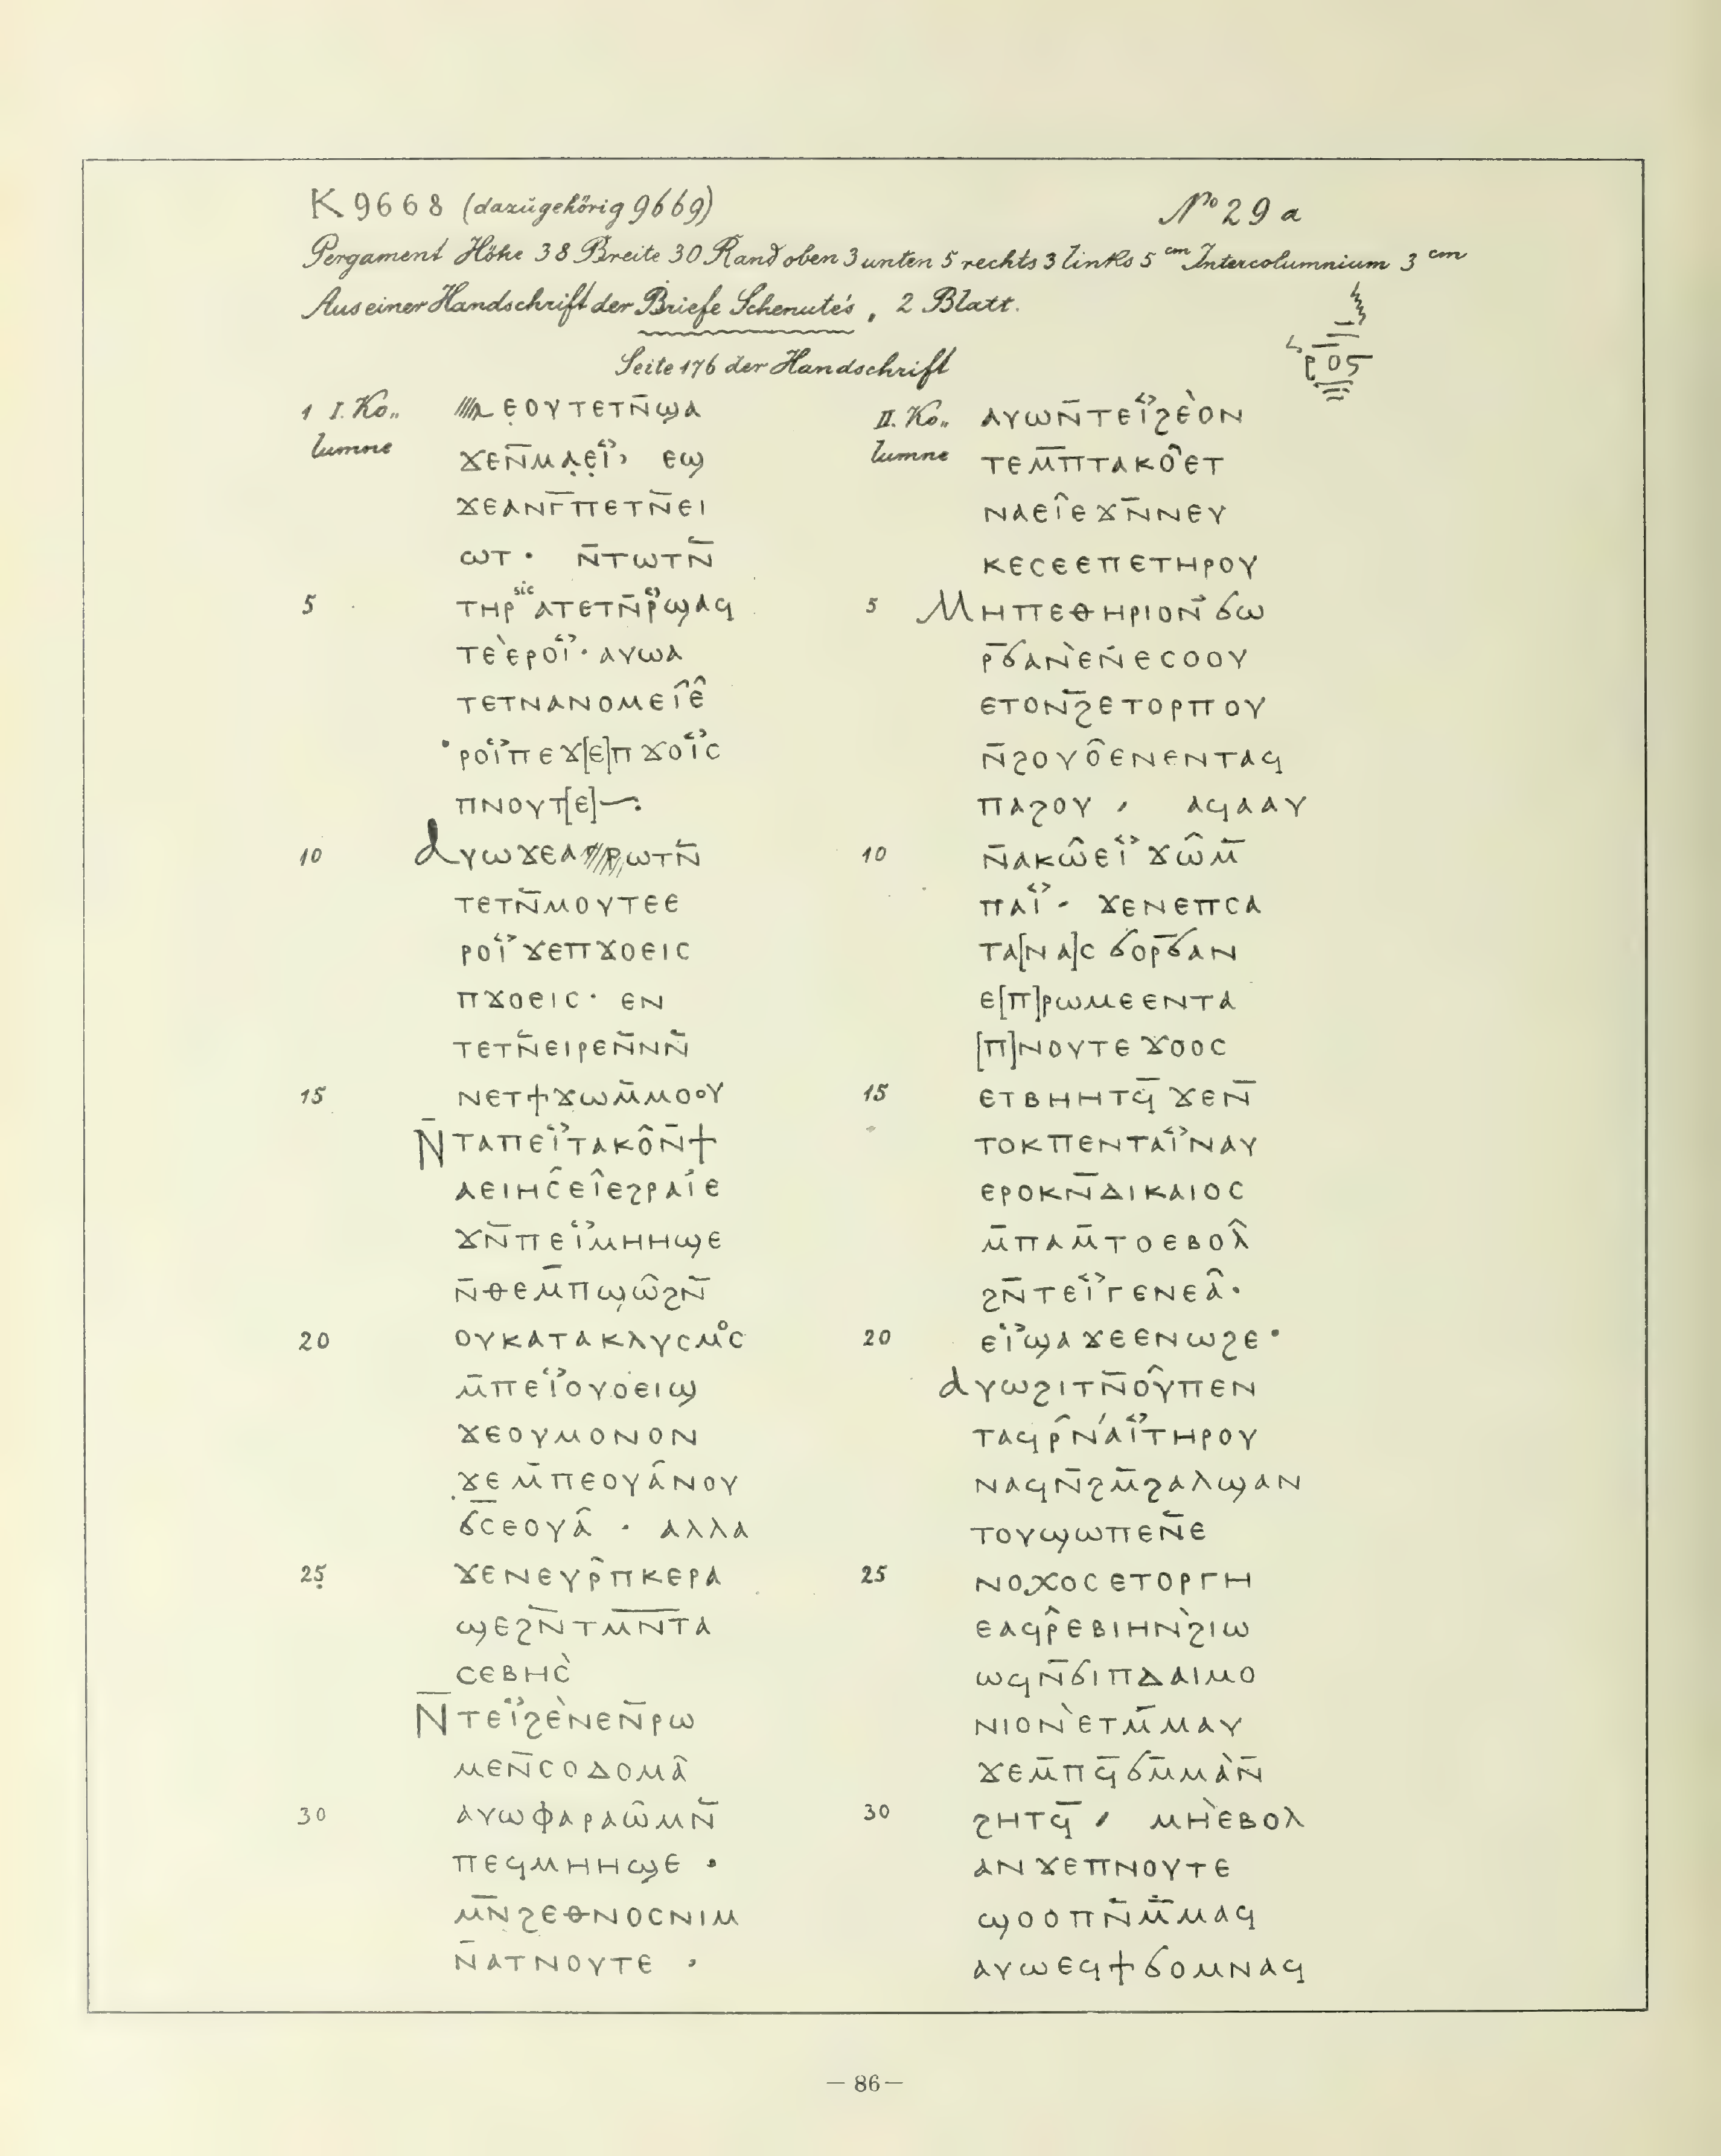 K 9668 (dazugehörig 9669)
№ 29 a
Pergament Höhe 38 Breite 30 Rand oben 3 unten 5 rechts 3 links 5 cm Intercolumnium 3 cm
Aus einer Handschrift der Briefe Schenute's, 2 Blatt.
Seite 176 der Handschrift
ⲣ̅ⲟ̅ⲋ̅
1 I. Ko„
lumne
ⲉ̣ⲟⲩⲧⲉⲧⲛ̄ϣⲁ
ϫⲉⲛ̄ⲙⲁ̣ⲉ̣ⲓ̈› ⲉϣ
ϫⲉⲁⲛⲅ̄ⲡⲉⲧⲛ̄ⲉⲓ
ⲱⲧ · ⲛ̄ⲧⲱⲧⲛ̄
5 ⲧⲏⲣ sic ⲁⲧⲉⲧⲛ̄ⲣ̄ϣⲁϥ
ⲧⲉ̀ⲉⲣⲟⲓ̈ · ⲁⲩⲱⲁ
ⲧⲉⲧⲛⲁⲛⲟⲙⲉⲓ̂ⲉ̂
ⲣⲟⲓ̈ⲡⲉϫ[ⲉ]ⲡϫⲟⲓ̈ⲥ
ⲡⲛⲟⲩⲧ[ⲉ]—:
10 ⲁⲩⲱϫⲉⲁ ⲣⲱⲧⲛ̄
ⲧⲉⲧⲛ̄ⲙⲟⲩⲧⲉⲉ
ⲣⲟⲓ̈ϫⲉⲡϫⲟⲉⲓⲥ
ⲡϫⲟⲉⲓⲥ · ⲉⲛ
ⲧⲉⲧⲛ̄ⲉⲓⲣⲉⲛ̄ⲛⲛ̄
15 ⲛⲉⲧϯϫⲱⲙ̄ⲙⲟⲟⲩ
ⲛ̄ⲧⲁⲡⲉⲓ̈ⲧⲁⲕⲟ̂ⲛ̄ϯ
ⲁⲉⲓⲏⲥ̂ⲉⲓ̂ⲉϩⲣⲁⲓ̈ⲉ
ϫⲛ̄ⲡⲉⲓ̈ⲙⲏⲏϣⲉ
ⲛ̄ⲑⲉⲙ̄ⲡϣ̣ⲱ̂ϩⲛ̄
20 ⲟⲩⲕⲁⲧⲁⲕⲗⲩⲥⲙⲟⲥ
ⲙ̄ⲡⲉⲓ̈ⲟⲩⲟⲉⲓϣ
ϫⲉⲟⲩⲙⲟⲛⲟⲛ
ϫⲉⲙ̄ⲡⲉⲟⲩⲁ̂ⲛⲟⲩ
ϭⲥ̄ⲉⲟⲩⲁ̂ · ⲁⲗⲗⲁ
25 ϫⲉⲛⲉⲩⲣ̂ⲡⲕⲉⲣⲁ
ϣⲉϩⲛ̄ⲧⲙ̄ⲛ̄ⲧⲁ
ⲥⲉⲃⲏⲥ̀
ⲛ̄ⲧⲉⲓ̈ϩⲉ̀ⲛⲉⲛ̄ⲣⲱ
ⲙⲉⲛ̄ⲥⲟⲇⲟⲙⲁ̂
30 ⲁⲩⲱⲫⲁⲣⲁⲱ̂ⲙⲛ̄
ⲡⲉϥⲙⲏⲏϣⲉ ·
ⲙ̄ⲛϩⲉⲑⲛⲟⲥⲛⲓⲙ
ⲛ̄ⲁⲧⲛⲟⲩⲧⲉ ·
II. Ko„
lumne
ⲁⲩⲱⲛ̄ⲧⲉⲓ̈ϩⲉ̀ⲟⲛ
ⲧⲉⲙ̄ⲡⲧⲁⲕⲟ̂ⲉⲧ
ⲛⲁⲉⲓ̂ⲉϫⲛ̄ⲛⲉⲩ
ⲕⲉⲥⲉⲉⲡⲉⲧⲏⲣⲟⲩ
5 ⲙⲏⲡⲉⲑⲏⲣⲓⲟⲛ̀ϭⲱ
ⲣ̄ϭⲁⲛ̀ⲉⲛ̀ⲉⲥⲟⲟⲩ
ⲉⲧⲟⲛϩ̄ⲉⲧⲟⲣⲡⲟⲩ
ⲛ̄ϩⲟⲩⲟ̂ⲉⲛⲉⲛⲧⲁϥ
ⲡⲁϩⲟⲩ ʼ ⲁϥⲁⲁⲩ
10 ⲛ̄ⲁⲕⲱ̂ⲉⲓ̈ϫⲱ̂ⲙ̄
ⲡⲁⲓ̈ · ϫⲉⲛⲉⲡⲥⲁ
ⲧⲁ[ⲛⲁ]ⲥϭⲟⲣϭ̄ⲁⲛ
ⲉ[ⲡ]ⲣⲱⲙⲉⲉⲛⲧⲁ
[ⲡ]ⲛⲟⲩⲧⲉϫⲟⲟⲥ
15 ⲉⲧⲃⲏⲏⲧϥ̄ϫⲉⲛ̄
ⲧⲟⲕⲡⲉⲛⲧⲁⲓ̈ⲛⲁⲩ
ⲉⲣⲟⲕⲛ̄ⲇⲓⲕⲁⲓⲟⲥ
ⲙ̄ⲡⲁⲙ̄ⲧⲟⲉⲃⲟⲗ̂
ϩⲛ̄ⲧⲉⲓ̈ⲅⲉⲛⲉⲁ̂ ·
20 ⲉⲓ̈ϣⲁϫⲉⲉⲛⲱϩⲉ ·
ⲁⲩⲱϩⲓⲧⲛ̄ⲟⲩ̂ⲡⲉⲛ
ⲧⲁϥⲣ̂ⲛ́ⲁⲓ̈ⲧⲏⲣⲟⲩ
ⲛⲁϥⲛ̄ϩⲙ̄ϩⲁⲗϣⲁⲛ
ⲧⲟⲩϣⲱⲡⲉⲛ̄ⲉ
25 ⲛⲟⲭⲟⲥⲉⲧⲟⲣⲅⲏ
ⲉⲁϥⲣ̂ⲉⲃⲓⲏⲛ̀ϩⲓⲱ
ⲱϥⲛ̄ϭⲓⲡⲇⲁⲓⲙⲟ
ⲛⲓⲟⲛ̀ⲉⲧⲙ̄ⲙⲁⲩ
ϫⲉⲙ̄ⲡϥ̄ϭⲙ̄ⲙⲁ̀ⲛ̄
30 ϩⲏⲧϥ̄ ʼ ⲙⲏ̀ⲉⲃⲟⲗ
ⲁⲛϫⲉⲡⲛⲟⲩⲧⲉ
ϣⲟⲟⲡⲛ̄ⲙ̄ⲙⲁϥ
ⲁⲩⲱⲉϥϯϭⲟⲙⲛⲁϥ
— 86 —